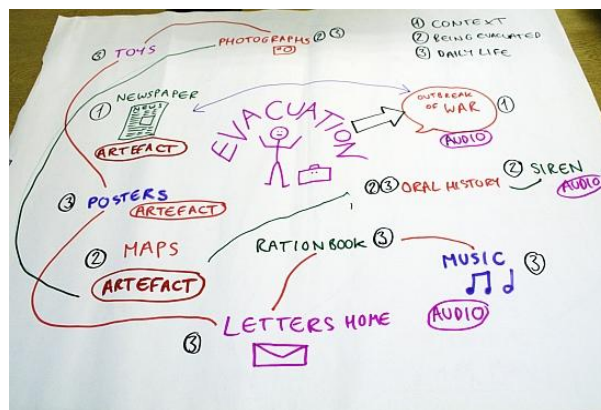 ③ TOYS
PHOTOGRAPHS ② ③
① CONTEXT
② BEING EVACUATED
③ DAILY LIFE
① NEWSPAPER
NEWS
ARTEFACT
EVACUATION
OUTBREAK
OF WAR ①
AUDIO
③ POSTERS
ARTEFACT
②③ ORAL HISTORY
② SIREN
AUDIO
② MAPS
ARTEFACT
RATION BOOK ③
MUSIC ③
AUDIO
③ LETTERS HOME